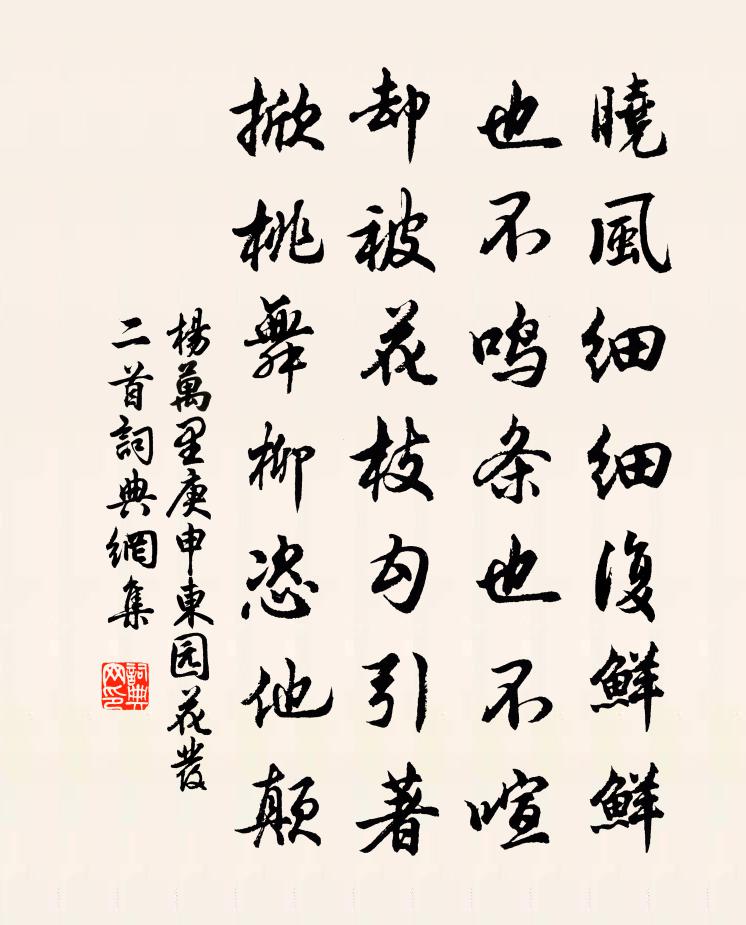 曉風細細復鮮鮮
也不鸣条也不喧
却被花枝勾引著
掀桃舞柳恣他顛
楊萬里庚申東园花發
二首詞典網集
詞典網印